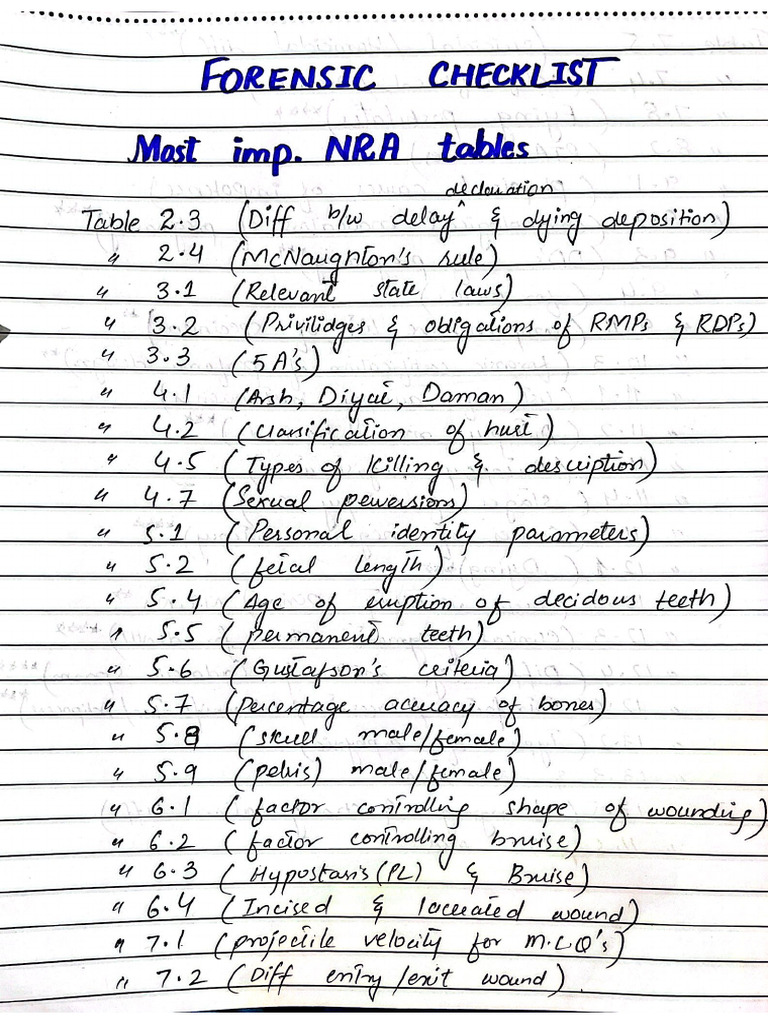 FORENSIC CHECKLIST
Most imp. NRA tables
declaration
Table 2.3 (Diff b/w delay ^ & dying deposition)
" 2.4 (McNaughton's rule)
" 3.1 (Relevant state laws)
" 3.2 (Privilidges & obligations of RMPs & RDPs)
" 3.3 (5A's)
" 4.1 (Arsh, Diyat, Daman)
" 4.2 (Classification of hurt)
" 4.5 (Types of killing & description)
" 4.7 (Sexual perversions)
" 5.1 (Personal identity parameters)
" 5.2 (fetal length)
" 5.4 (Age of eruption of decidous teeth)
" 5.5 (permanent teeth)
" 5.6 (Gustafson's criteria)
" 5.7 (Percentage accuracy of bones)
" 5.8 (skull male/female)
" 5.9 (pelvis) male/female)
" 6.1 (factor controlling shape of wounding)
" 6.2 (factor controlling bruise)
" 6.3 (Hypostasis (PL) & Bruise)
" 6.4 (Incised & lacerated wound)
" 7.1 (projectile velocity for M.C.Q's)
" 7.2 (Diff entry/exit wound).